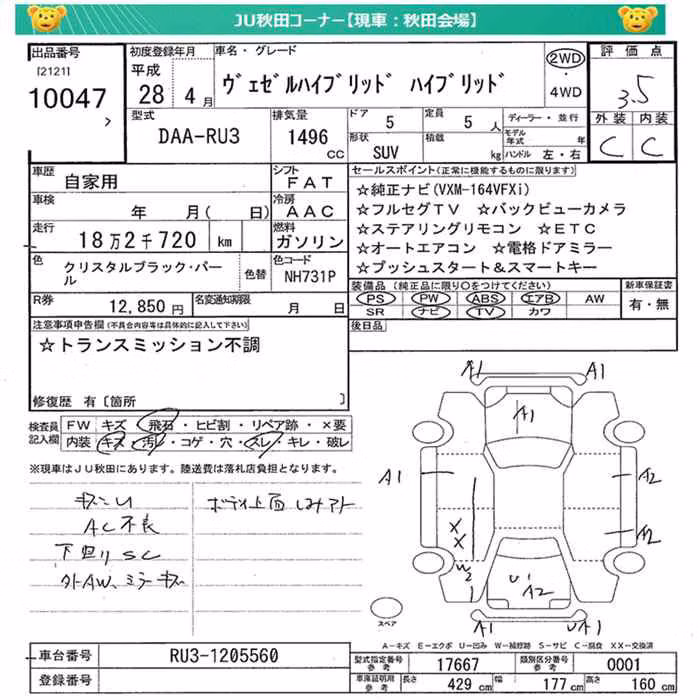 JU秋田コーナー【現車：秋田会場】
出品番号 初度登録年月 車名・グレード 2WD・4WD 評価点
[2121] 10047 平成28 4月 ヴェゼルハイブリッド ハイブリッド 3.5
型式 DAA-RU3 排気量 1496 CC ドア 5 定員 5人 ディーラー・並行 外装 内装
形状 SUV 積載 kg モデル年式 年 ハンドル 左・右 C C
車歴 自家用 シフト FAT セールスポイント(正常に機能するものに限ります)
車検 年 月( 日) 冷房 AAC ☆純正ナビ(VXM-164VFXi)
☆フルセグTV ☆バックビューカメラ
走行 18万2千720 km 燃料 ガソリン ☆ステアリングリモコン ☆ETC
☆オートエアコン ☆電格ドアミラー
色 クリスタルブラック・パール 色替 色コード NH731P ☆プッシュスタート＆スマートキー
R券 12,850円 名変通知期限 月 日 装備品(純正品に限り○をつけてください) 新車保証書
PS PW ABS エアB AW 有・無
SR ナビ TV カワ
注意事項申告欄(不具合内容等は具体的に記入して下さい) 後日品
☆トランスミッション不調
修復歴 有〔箇所 〕
検査員記入欄 FW キズ・飛石・ヒビ割・リペア跡・×要
内装 キズ・汚レ・コゲ・穴・スレ・キレ・破レ
※現車はJU秋田にあります。陸送費は落札店負担となります。
AC不良
下回りSC
ボディ上面シミアト
外AW、ミラーキズ
A1 A1
A1
A1 A2
A2
X
X
W2
1
U1 A2
A1 UA1
スペア
A－キズ E－エクボ U－凹み W－補修跡 S－サビ C－腐食 XX－交換済
車台番号 RU3-1205560 型式指定番号 参考 17667 類別区分番号 参考 0001
登録番号 車庫証明用 参考 長さ 429 cm 幅 177 cm 高さ 160 cm